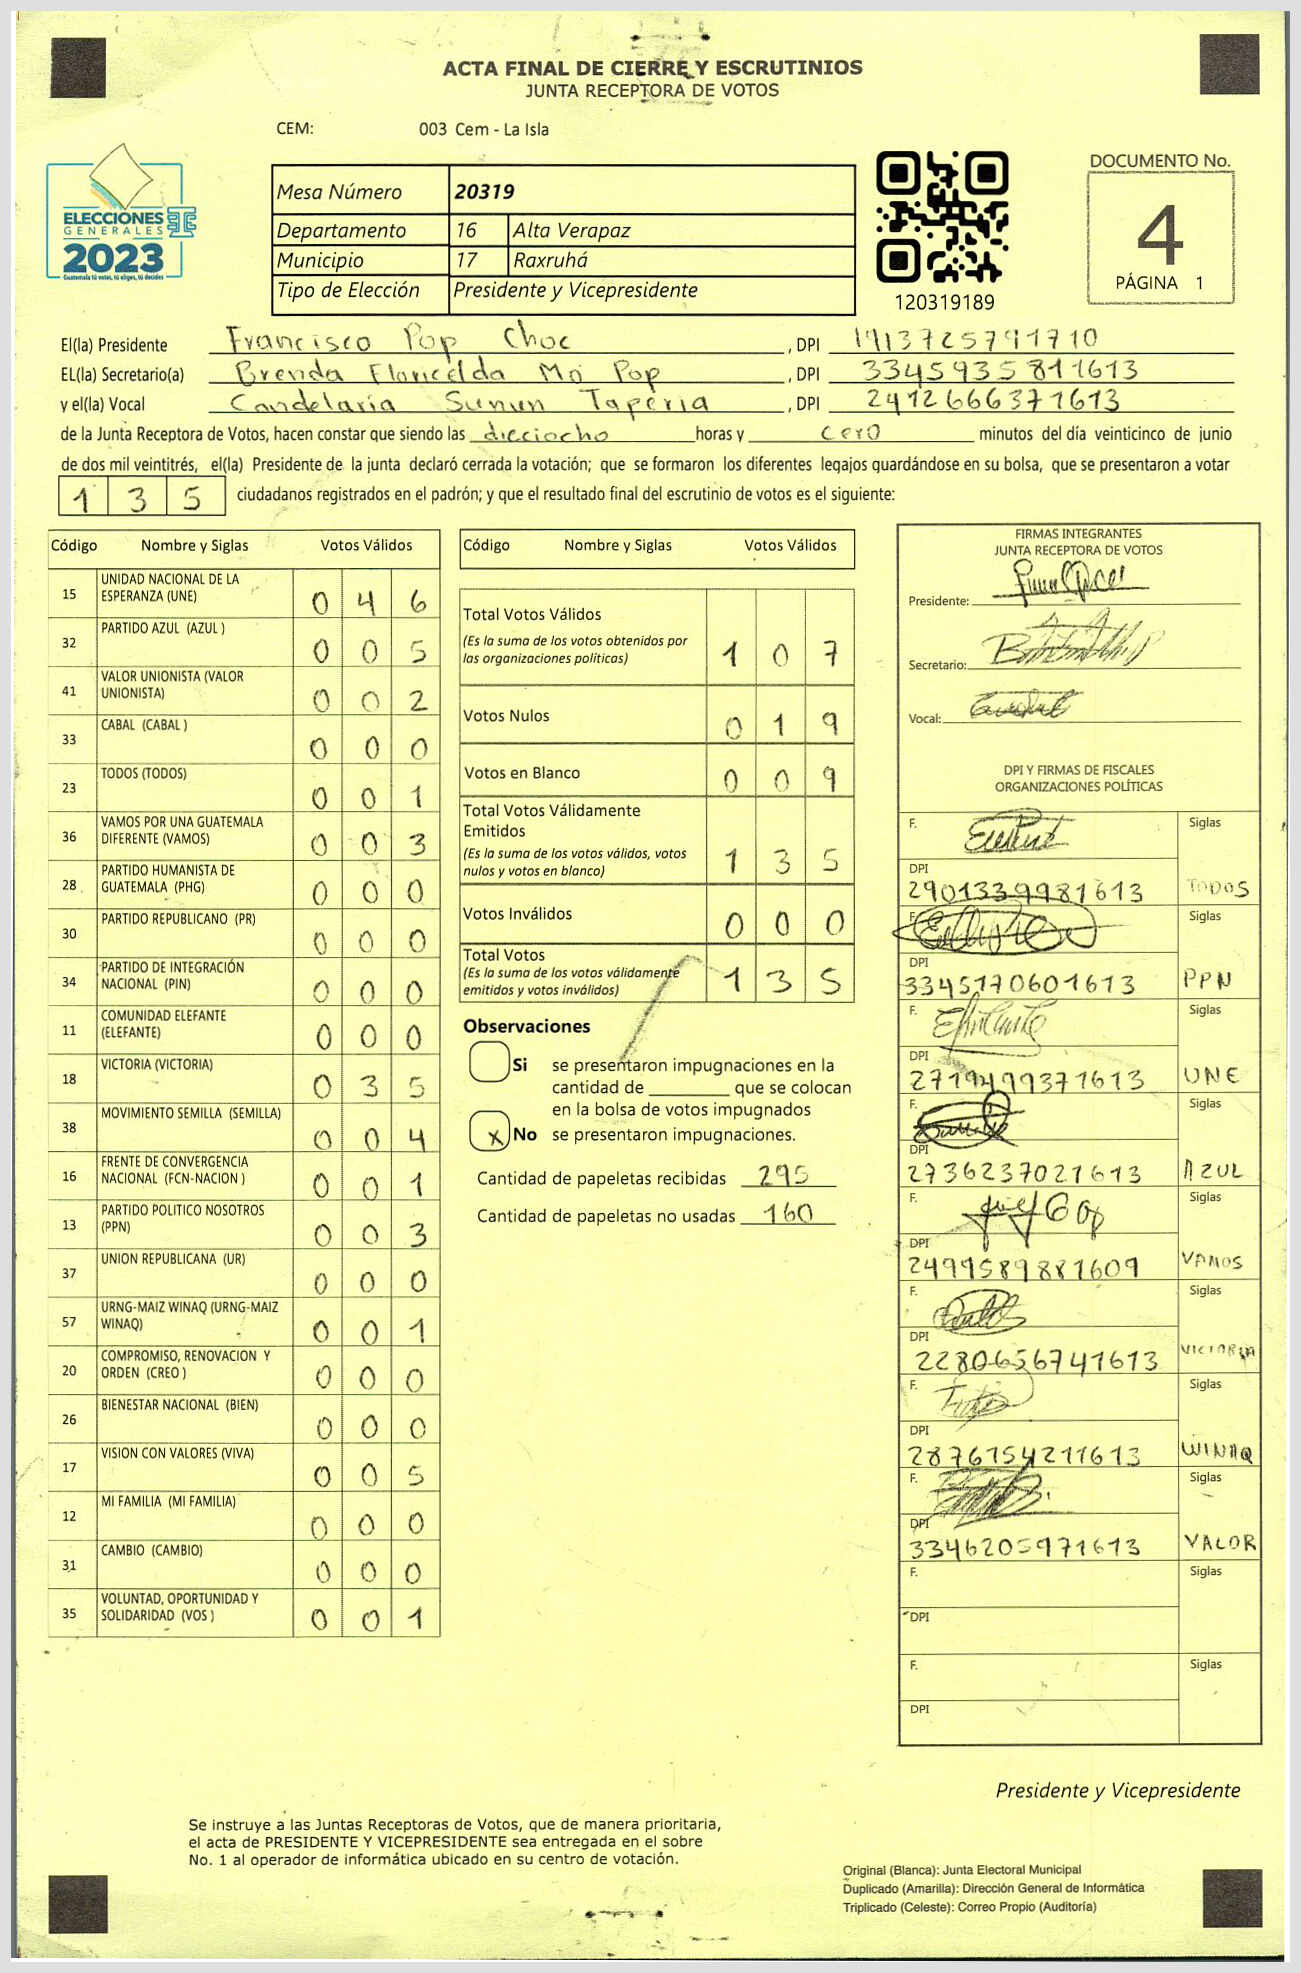 ACTA FINAL DE CIERRE Y ESCRUTINIOS
JUNTA RECEPTORA DE VOTOS
CEM: 003 Cem - La Isla
ELECCIONES
GENERALES
2023
Guatemala tú votas, tú eliges, tú decides
Mesa Número 20319
Departamento 16 Alta Verapaz
Municipio 17 Raxruhá
Tipo de Elección Presidente y Vicepresidente
120319189
DOCUMENTO No.
4
PÁGINA 1
El(la) Presidente Francisco Pop Choc , DPI 1913725791710
EL(la) Secretario(a) Brenda Floricelda Mó Pop , DPI 3345935811613
y el(la) Vocal Candelaria Sunun Taperia , DPI 2412666371613
de la Junta Receptora de Votos, hacen constar que siendo las dieciocho horas y cero minutos del día veinticinco de junio
de dos mil veintitrés, el(la) Presidente de la junta declaró cerrada la votación; que se formaron los diferentes legajos guardándose en su bolsa, que se presentaron a votar
1 3 5 ciudadanos registrados en el padrón; y que el resultado final del escrutinio de votos es el siguiente:
Código Nombre y Siglas Votos Válidos
15 UNIDAD NACIONAL DE LA
ESPERANZA (UNE) 0 4 6
32 PARTIDO AZUL (AZUL ) 0 0 5
41 VALOR UNIONISTA (VALOR
UNIONISTA) 0 0 2
33 CABAL (CABAL ) 0 0 0
23 TODOS (TODOS) 0 0 1
36 VAMOS POR UNA GUATEMALA
DIFERENTE (VAMOS) 0 0 3
28 PARTIDO HUMANISTA DE
GUATEMALA (PHG) 0 0 0
30 PARTIDO REPUBLICANO (PR) 0 0 0
34 PARTIDO DE INTEGRACIÓN
NACIONAL (PIN) 0 0 0
11 COMUNIDAD ELEFANTE
(ELEFANTE) 0 0 0
18 VICTORIA (VICTORIA) 0 3 5
38 MOVIMIENTO SEMILLA (SEMILLA) 0 0 4
16 FRENTE DE CONVERGENCIA
NACIONAL (FCN-NACION ) 0 0 1
13 PARTIDO POLITICO NOSOTROS
(PPN) 0 0 3
37 UNION REPUBLICANA (UR) 0 0 0
57 URNG-MAIZ WINAQ (URNG-MAIZ
WINAQ) 0 0 1
20 COMPROMISO, RENOVACION Y
ORDEN (CREO ) 0 0 0
26 BIENESTAR NACIONAL (BIEN) 0 0 0
17 VISION CON VALORES (VIVA) 0 0 5
12 MI FAMILIA (MI FAMILIA) 0 0 0
31 CAMBIO (CAMBIO) 0 0 0
35 VOLUNTAD, OPORTUNIDAD Y
SOLIDARIDAD (VOS ) 0 0 1
Código Nombre y Siglas Votos Válidos
Total Votos Válidos
(Es la suma de los votos obtenidos por
las organizaciones políticas) 1 0 7
Votos Nulos 0 1 9
Votos en Blanco 0 0 9
Total Votos Válidamente
Emitidos
(Es la suma de los votos válidos, votos
nulos y votos en blanco) 1 3 5
Votos Inválidos 0 0 0
Total Votos
(Es la suma de los votos válidamente
emitidos y votos inválidos) 1 3 5
Observaciones
Si se presentaron impugnaciones en la
cantidad de ________ que se colocan
en la bolsa de votos impugnados
x No se presentaron impugnaciones.
Cantidad de papeletas recibidas 295
Cantidad de papeletas no usadas 160
FIRMAS INTEGRANTES
JUNTA RECEPTORA DE VOTOS
Presidente:
Secretario:
Vocal:
DPI Y FIRMAS DE FISCALES
ORGANIZACIONES POLÍTICAS
F. Siglas
DPI
2901339981613 TODOS
F. Siglas
DPI
3345170601613 PPN
F. Siglas
DPI
2719499371613 UNE
F. Siglas
DPI
2736237021613 AZUL
F. Siglas
DPI
2499589881609 VAMOS
F. Siglas
DPI
2280656741613 VICTORIA
F. Siglas
DPI
2876154211613 WINAQ
F. Siglas
DPI
3346205971613 VALOR
F. Siglas
DPI
F. Siglas
DPI
Presidente y Vicepresidente
Se instruye a las Juntas Receptoras de Votos, que de manera prioritaria,
el acta de PRESIDENTE Y VICEPRESIDENTE sea entregada en el sobre
No. 1 al operador de informática ubicado en su centro de votación.
Original (Blanca): Junta Electoral Municipal
Duplicado (Amarilla): Dirección General de Informática
Triplicado (Celeste): Correo Propio (Auditoría)